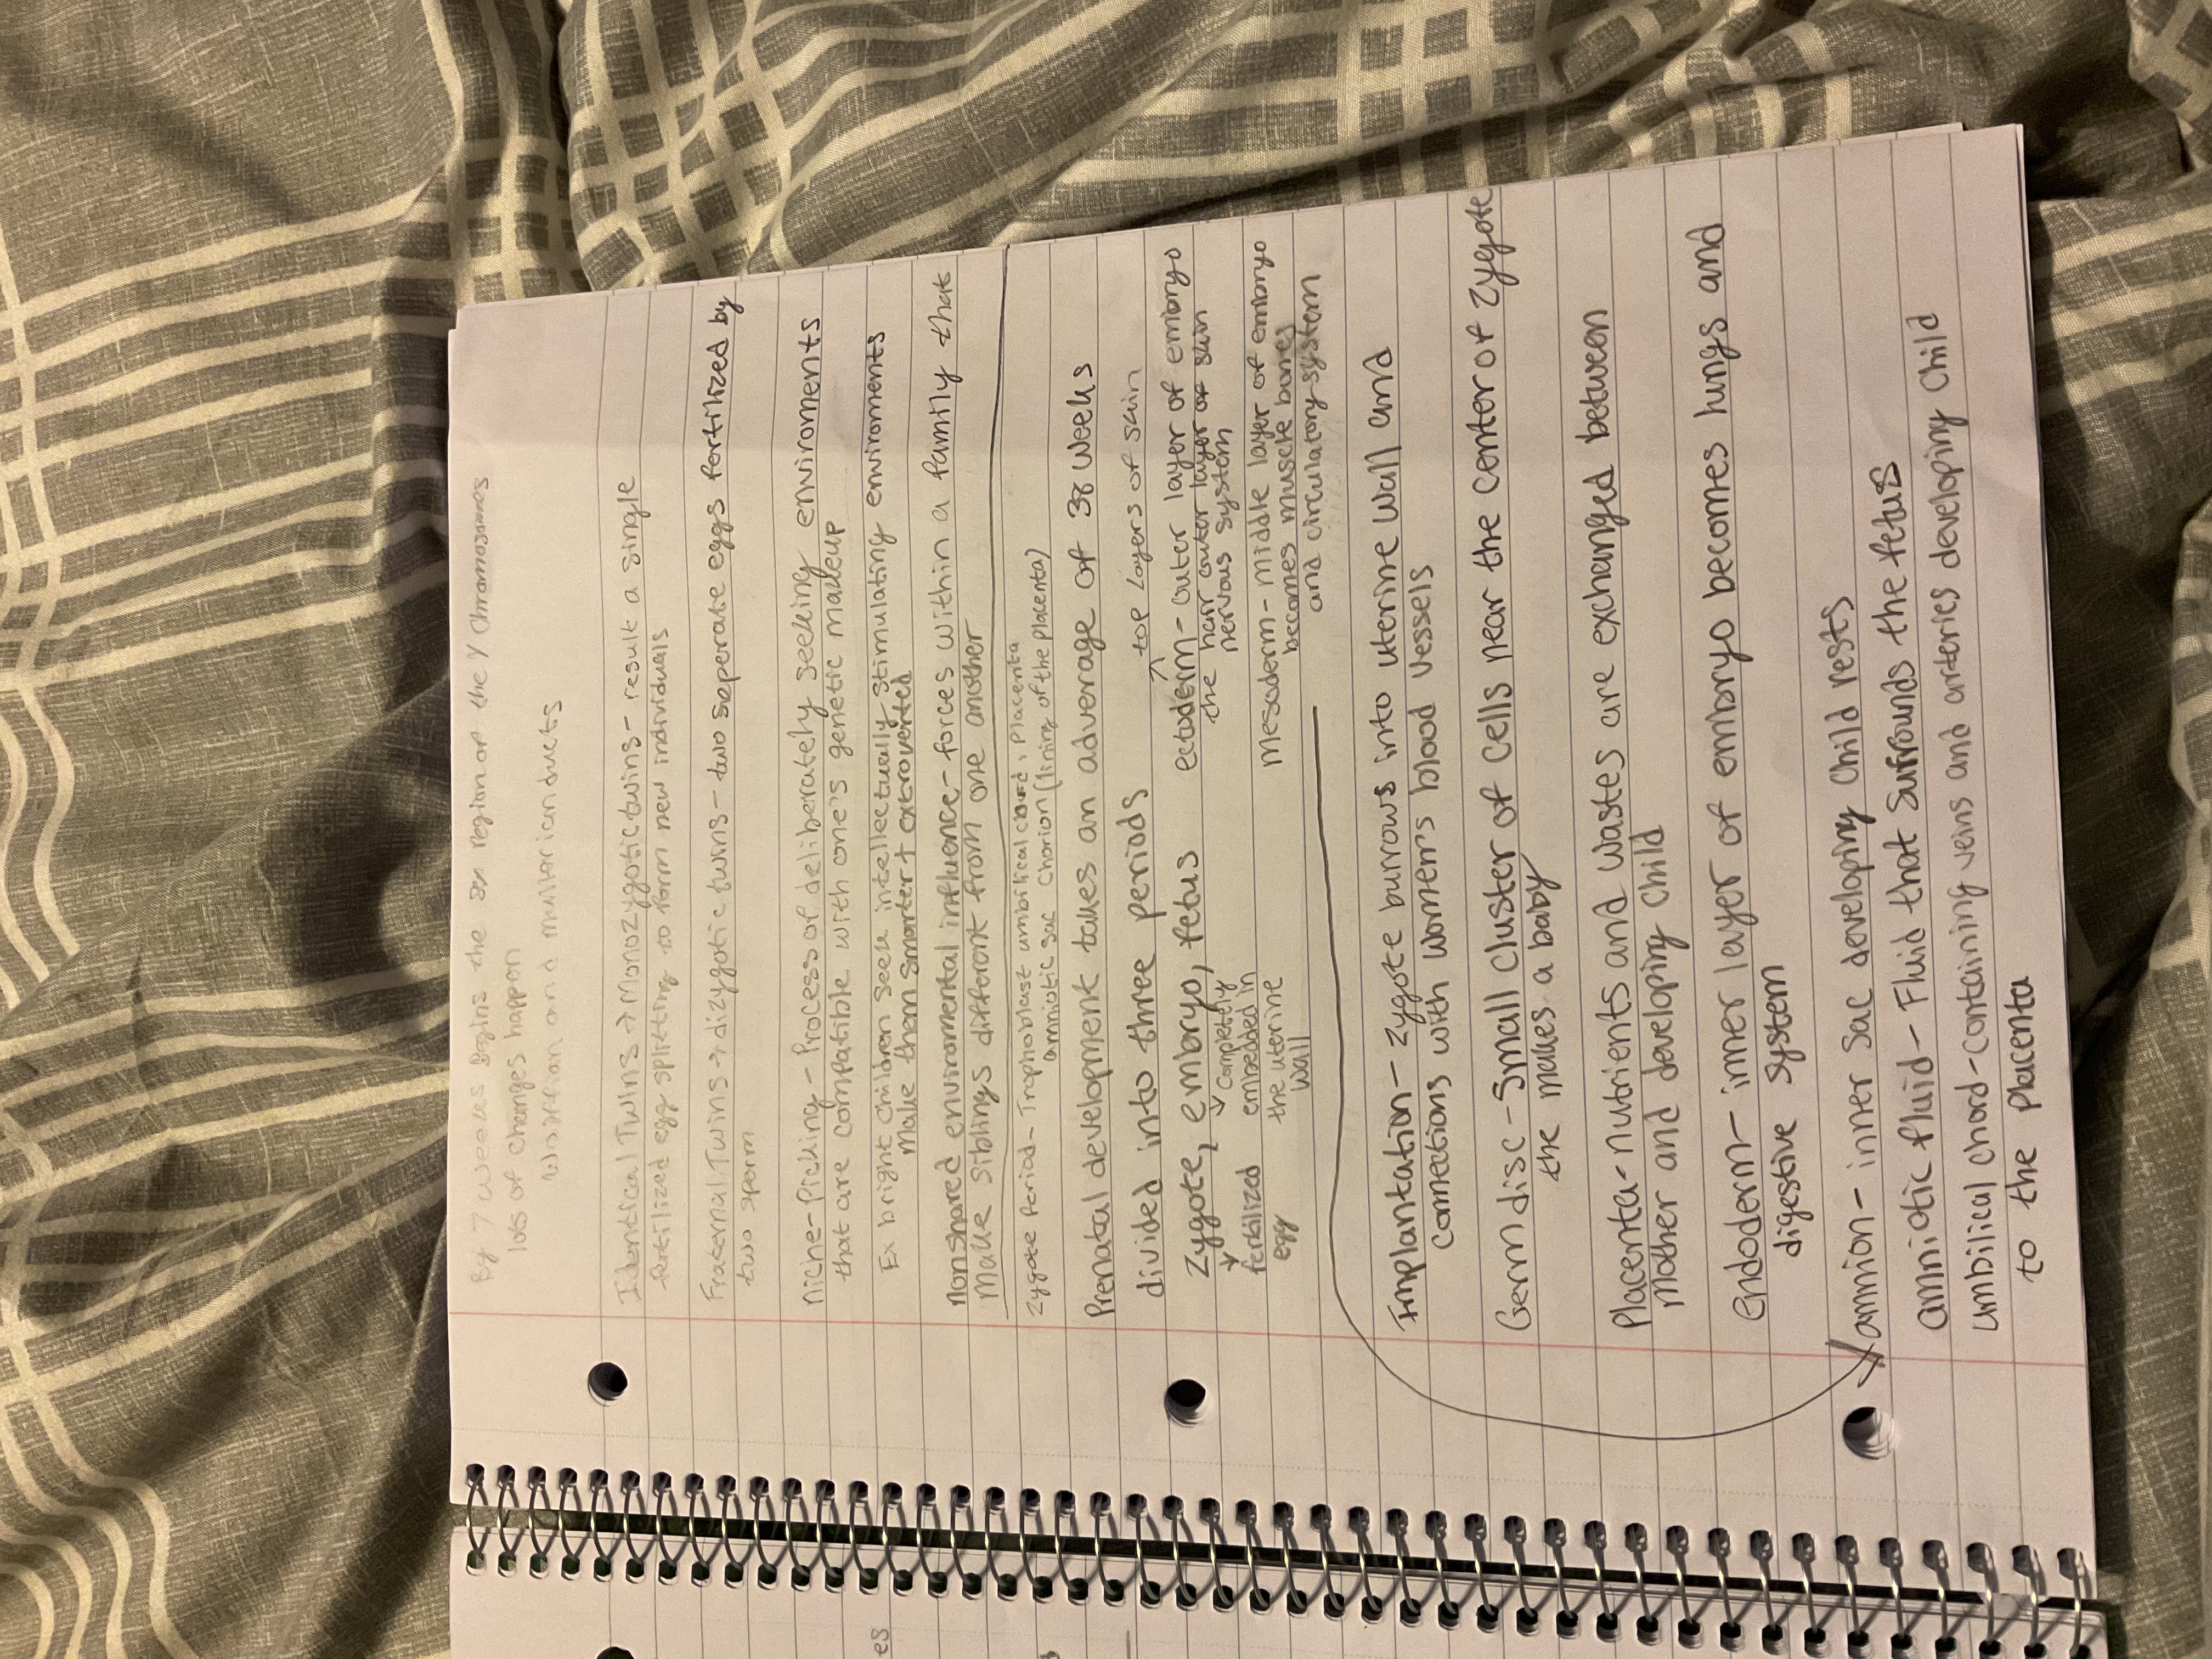 By 7 weeks begins the sry region of the Y Chromosomes
lots of changes happen
Wolffian and mullerian ducts
Identical Twins → Monozygotic twins - result a single
fertilized egg splitting to form new individuals
Fraternal Twins → dizygotic twins - two seperate eggs fertilized by
two sperm
Niche-Picking - Process of deliberately seeking enviroments
that are compatible with one's genetic makeup
Ex bright Children seek intellectually stimulating enviroments
Make them smarter + extroverted
Nonshared enviromental influence - forces within a family that
Make siblings different from one another
Zygote Period - Trophoblast umbilical cord, Placenta
amniotic sac Chorion (lining of the placenta)
Prenatal development takes an adverage of 38 weeks
divided into three periods
top layers of skin
Zygote, embryo, fetus
fertilized
egg
Completely
embedded in
the uterine
Wall
ectoderm - outer layer of embryo
the hair outer layer of skin
nervous system
Mesoderm - middle layer of embryo
becomes muscle bones
and circulatory system
Implantation - zygote burrows into uterine wall and
connections with women's blood vessels
Germ disc - Small cluster of cells near the center of zygote
the makes a baby
Placenta - nutrients and wastes are exchanged between
mother and developing child
Endoderm - inner layer of embryo becomes lungs and
digestive system
amnion - inner sac developing child rests
amniotic fluid - Fluid that surrounds the fetus
umbilical chord - containing veins and arteries developing child
to the placenta
es